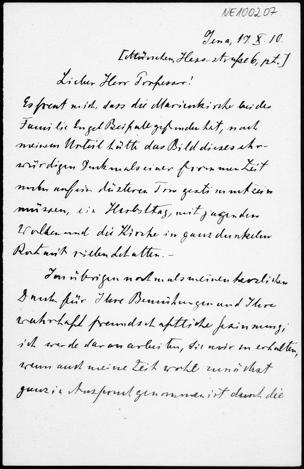 NE100207
Jena, 17. X. 10.
[München, Hess-straße 6, pt.]
Lieber Herr Professor!
Es freut mich, dass die Marienkirche bei der
Familie Engel Beifall gefunden hat, nach
meinem Urteil hätte das Bild dieses ehr-
würdigen Denkmals einer frommen Zeit
mehr auf ein düsteren Ton gestimmt sein
müssen, ein Herbsttag, mit jagenden
Wolken und die Kirche in ganz dunkelm
Rot mit vielen Schatten. –
Im übrigen nochmals meinen herzlichen
Dank für Ihre Bemühungen und Ihre
wahrhaft freundschaftliche Gesinnung;
ich werde daran arbeiten, sie mir zu erhalten,
wenn auch meine Zeit wohl zunächst
ganz in Anspruch genommen ist durch die